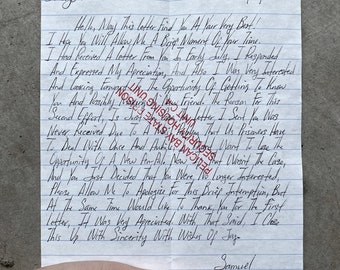 Hello, May This Letter Find You At Your Very Best!
I Hope You Will Allow Me A Brief Moment Of Your Time.
I Had Received A Letter From You In Early July, I Responded
And Expressed My Appreciation, And Also I Was Very Interested
And Looking Forward To The Opportunity Of Getting To Know
You And Possibly Your Friend. The Reason For This
Second Effort, Is Just The Letter I Sent You Was
Never Received Due To That Us Prisoners Have
To Deal With Once And Want To Lose the
Opportunity Of A New Wasnt the Case,
And You Just Decided That You Were No Longer Interested,
Please Allow Me To Apologize For This Brief Interruption, But
At The Same Time Would Like To Thank You For The First
Letter, It Was Very Appreciated With That Said, I Close
This Up With Sincerity With Wishes Of Joy
Samuel
PELICAN BAY STATE PRISON
SECURITY HOUSING UNIT